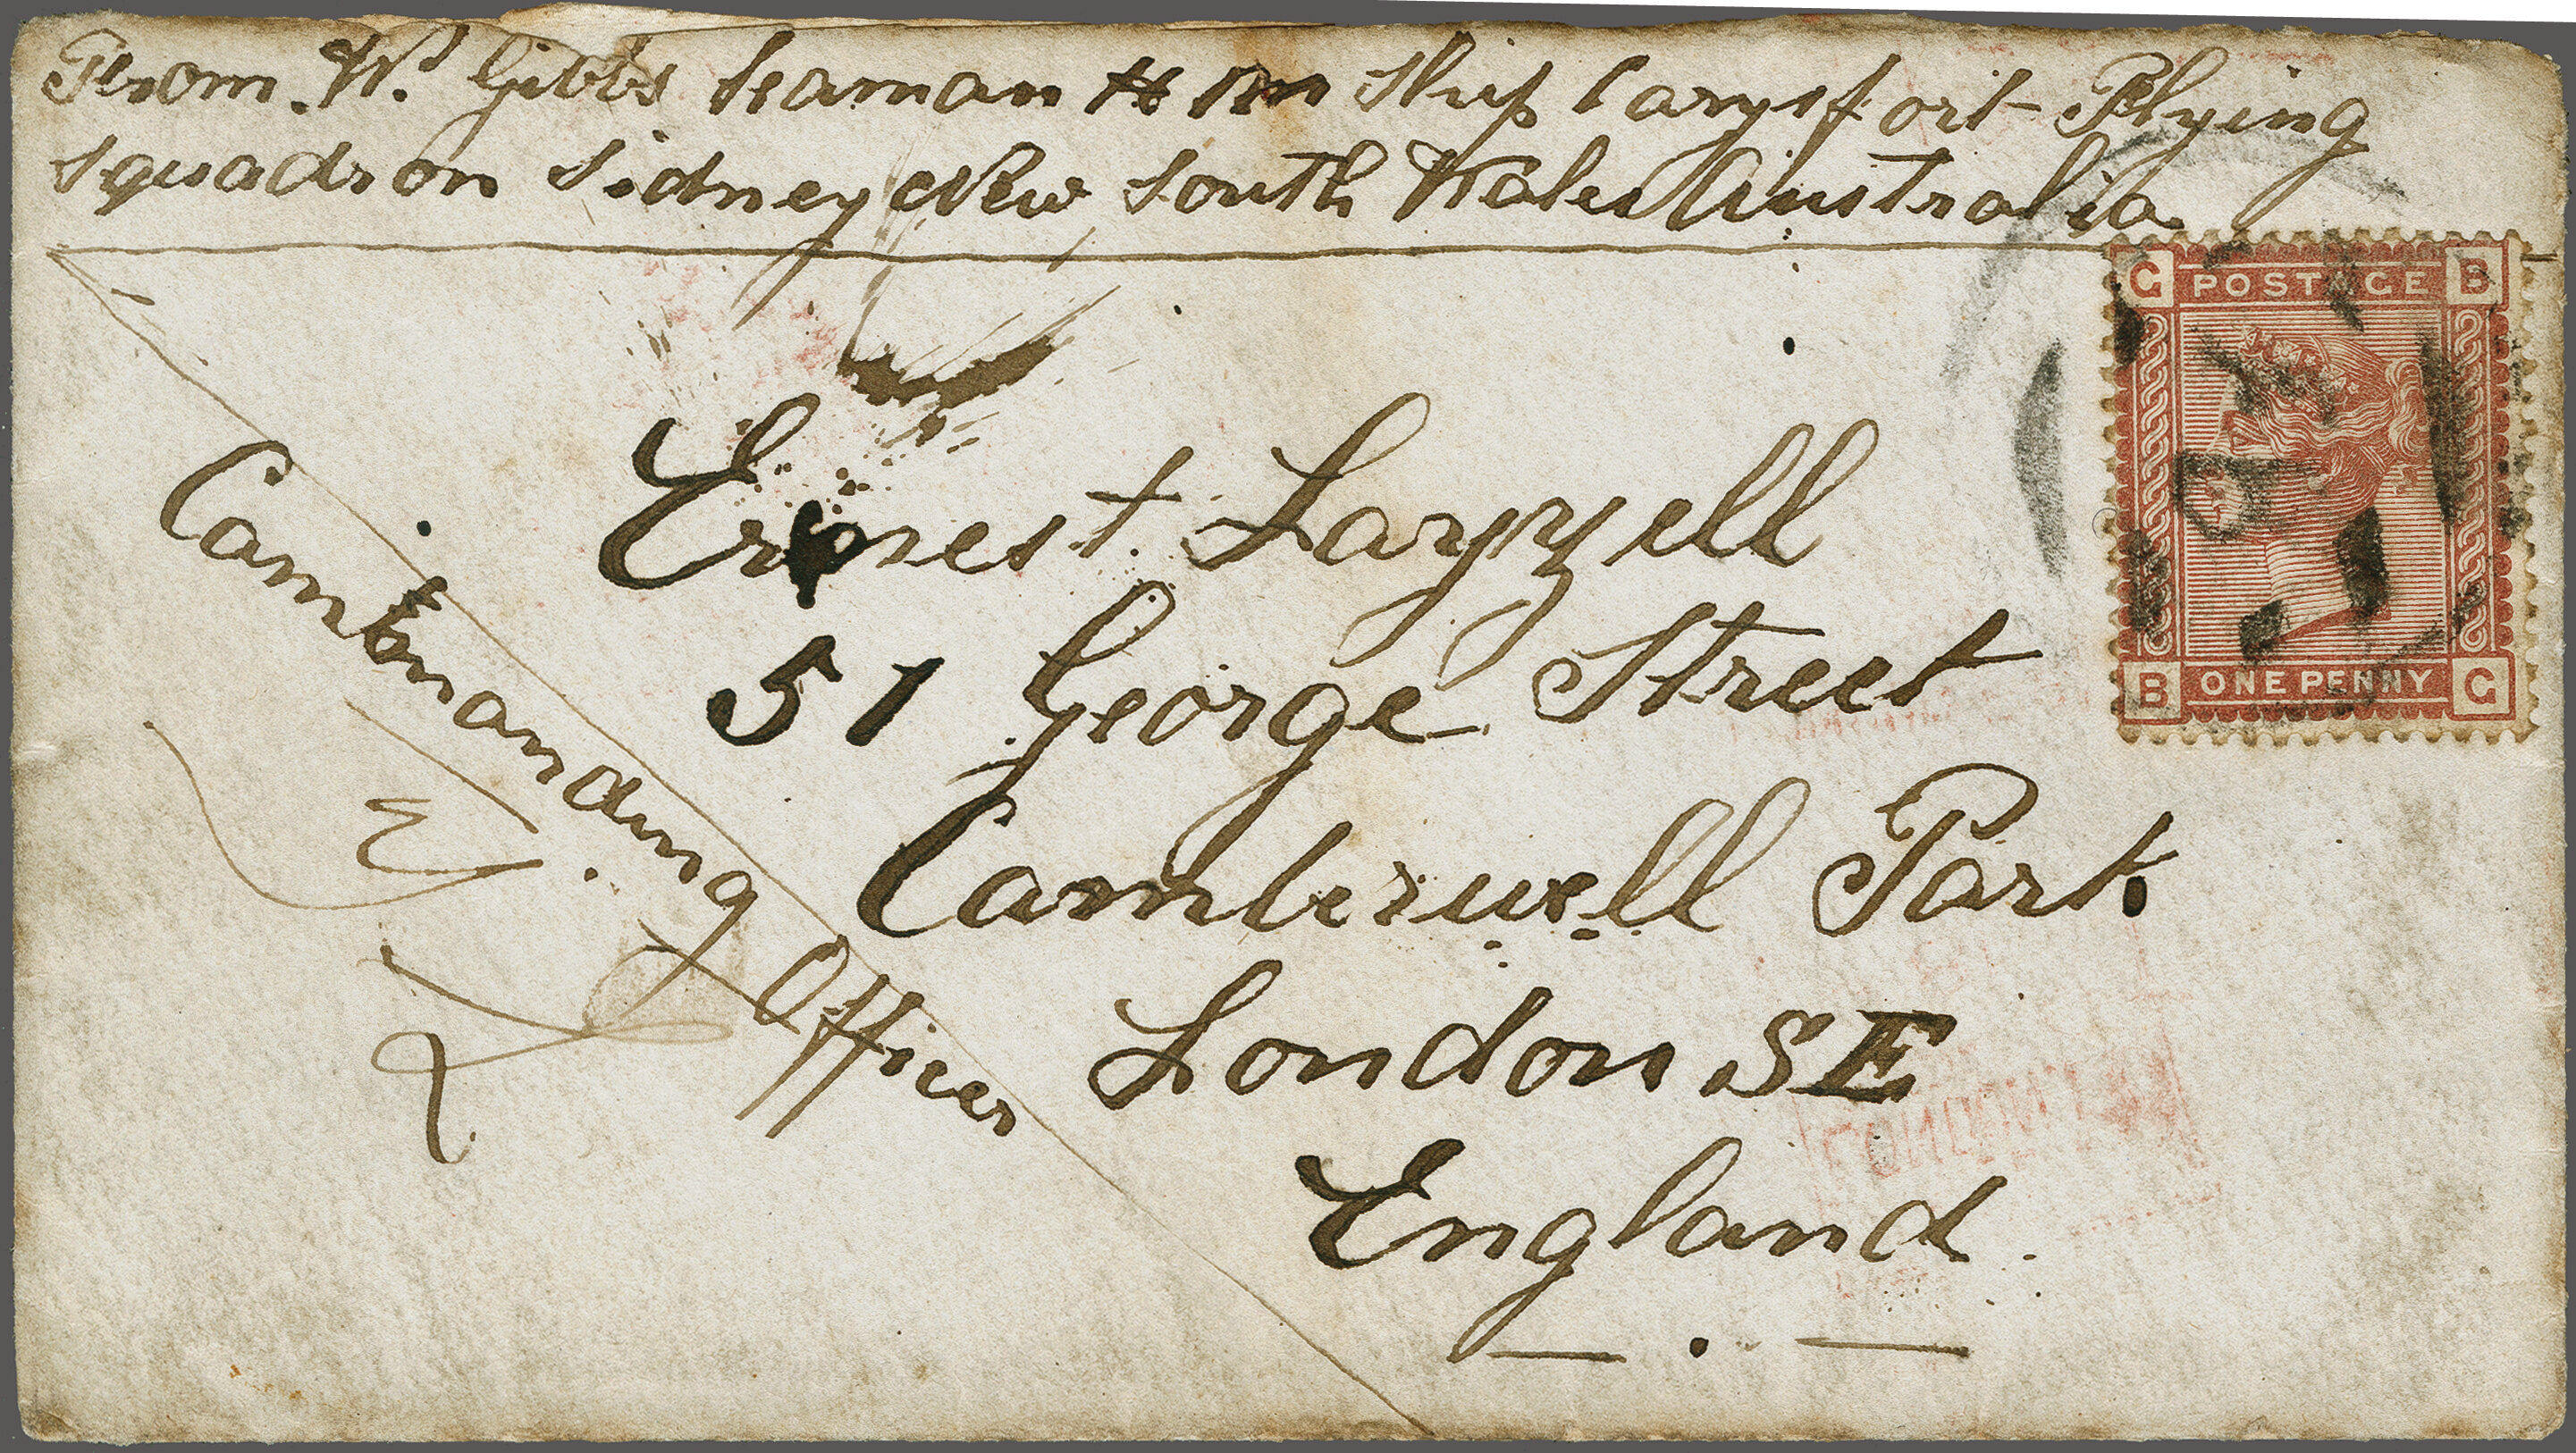 From. W. Gibbs Seaman H M Ship Carysfort Flying
Squadron Sidney New South Wales Australia
G POSTAGE B
B ONE PENNY G
Ernest Layzell
51 George Street
Camberwell Park
London SE
England.
Commanding Officer
LONDON